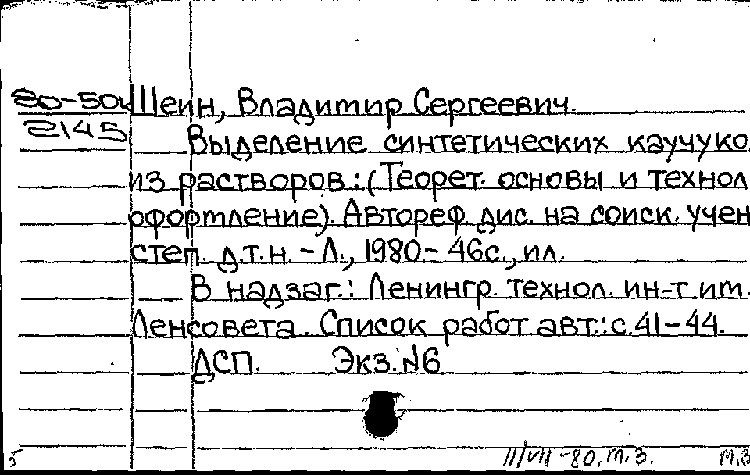 80-50к Шеин, Владимир Сергеевич.
2145 Выделение синтетических каучуко
из растворов: (Теорет. основы и технол
оформление). Автореф дис. на соиск. учен
степ. д.т.н. - Л., 1980 - 46с., ил.
В надзаг.: Ленингр. технол. ин-т им.
Ленсовета. Список работ авт.: с. 41-44.
ДСП. Экз. №6
5 11/VII-80. м.з. м.в